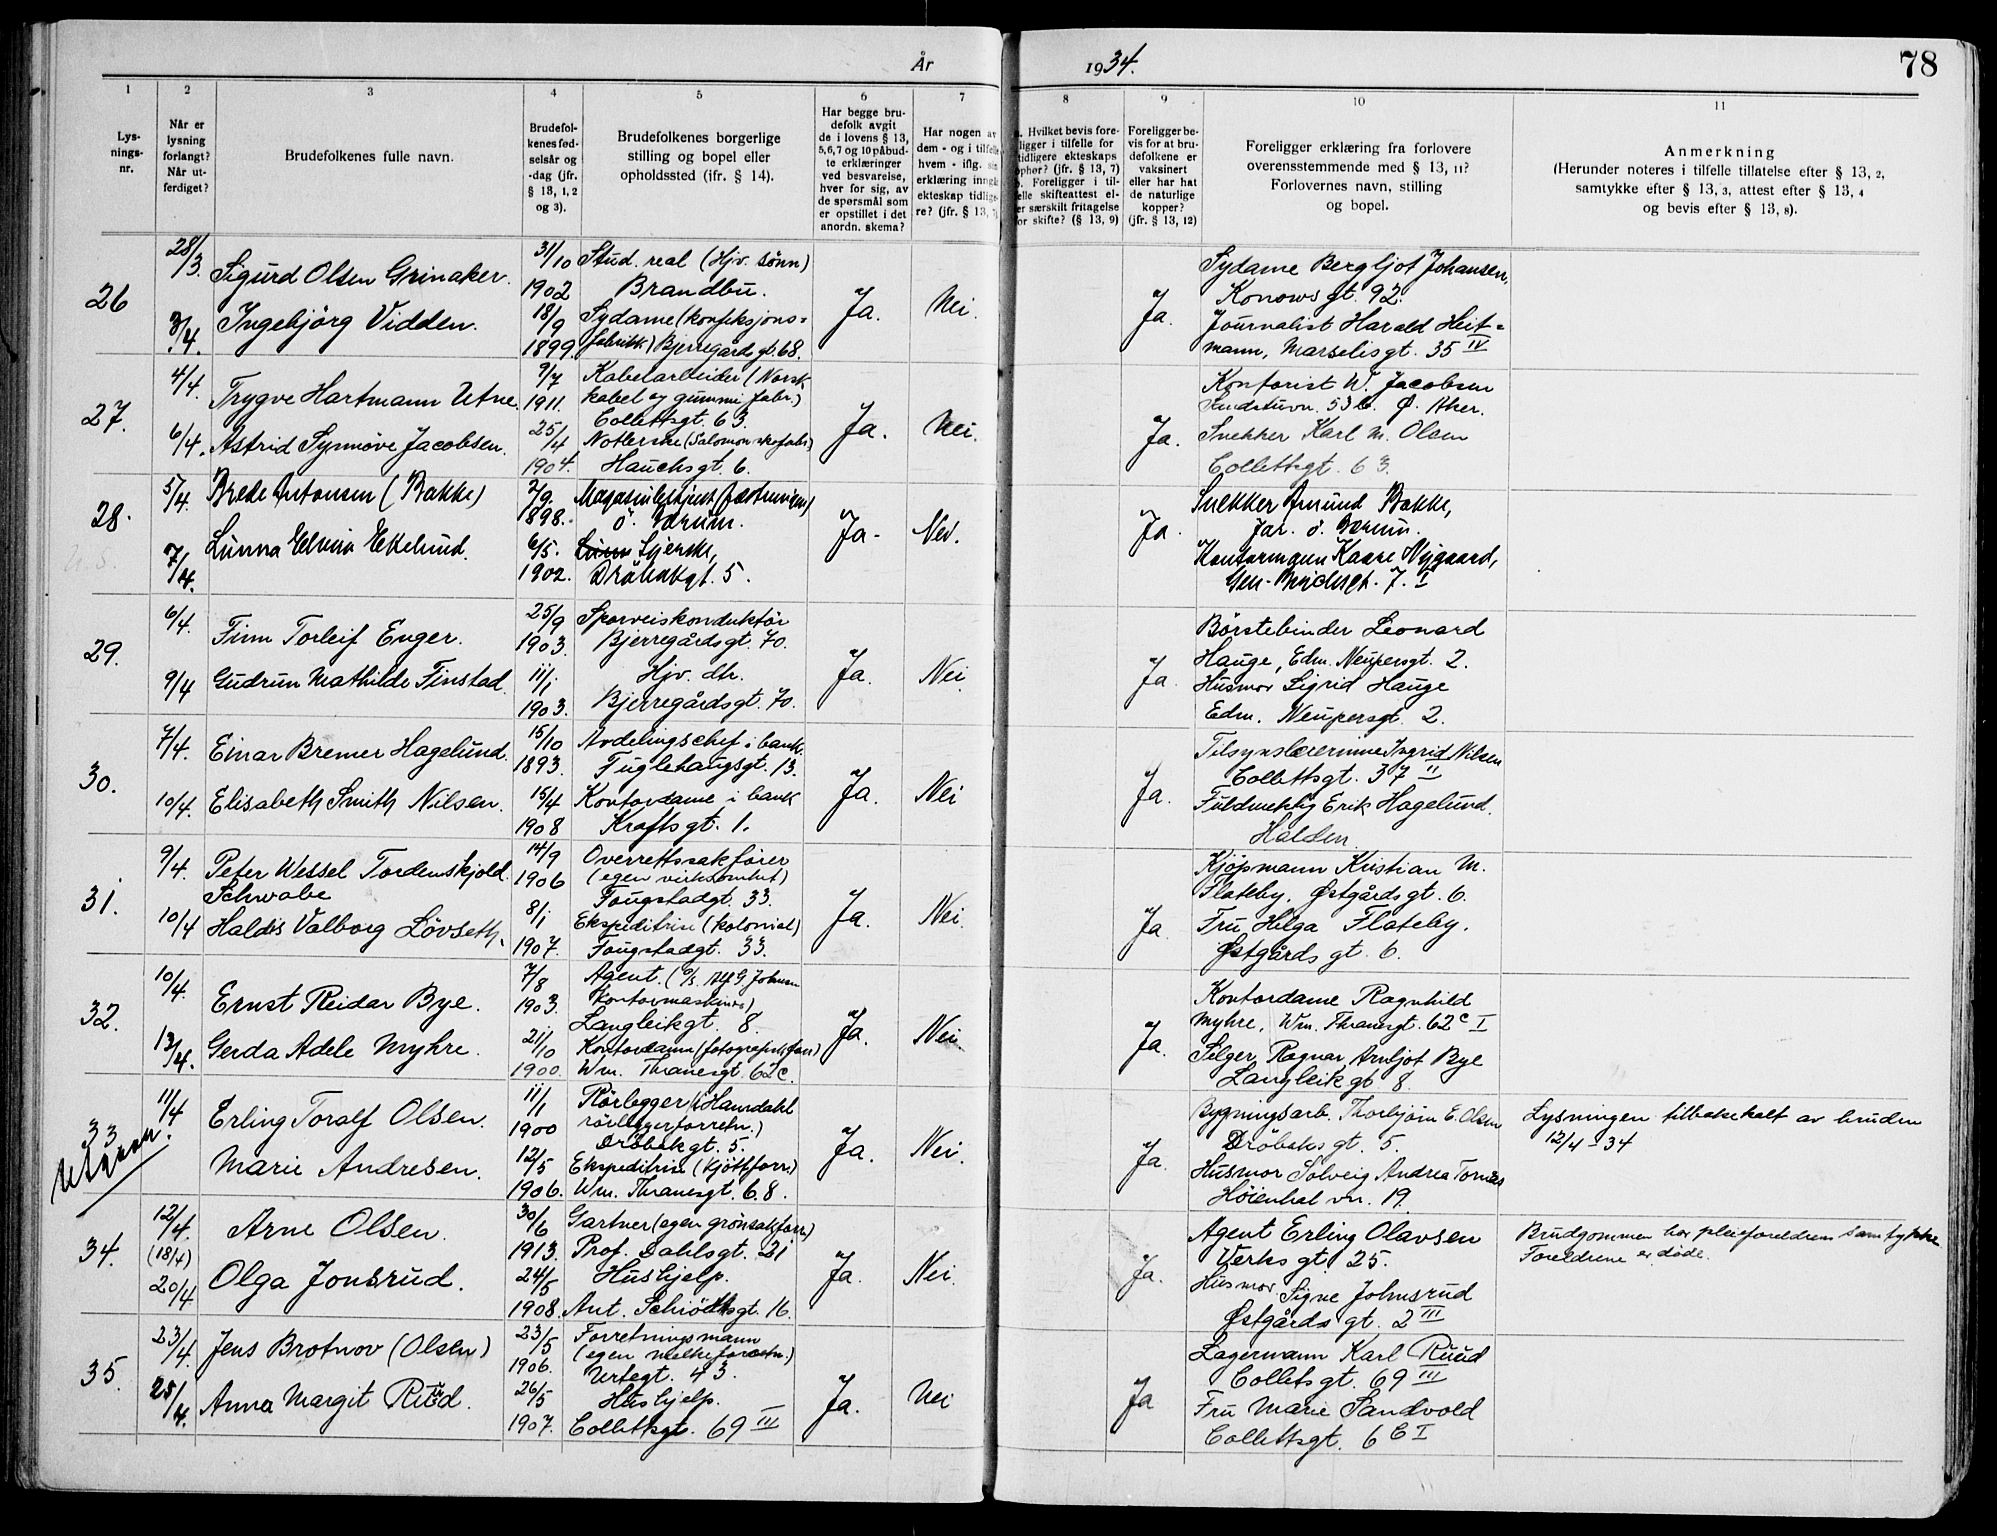 År 1934.
78
1
2
3
4
5
6
7
8
9
10
11
Lys-
nings-
nr.
Når er
lysning
forlangt?
Når ut-
ferdiget?
Brudefolkenes fulle navn.
Brudefol-
kenes fød-
selsår og
-dag (jfr.
§ 13, 1, 2
og 3).
Brudefolkenes borgerlige
stilling og bopel eller
opholdssted (ifr. § 14).
Har begge bru-
defolk avgit
de i lovens § 13,
5,6,7 og 10 påbud-
te erklæringer
ved besvarelse,
hver for sig, av
de spørsmål som
er opstillet i det
anordn. skema?
Har nogen av
dem - og i tilfelle
hvem - iflg. sin
erklæring inngåt
ekteskap tidlige-
re? (jfr. § 13,
Hvilket bevis fore-
ligger i tilfelle for
tidligere ekteskaps
ophør? (jfr. § 13, 7)
Foreligger i til-
felle skifteattest el-
er særskilt fritagelse
for skifte? (§ 13, 9)
Foreligger be-
vis for at bru-
defolkene er
vaksinert
eller har hat
de naturlige
kopper?
(jfr. § 13, 12)
Foreligger erklæring fra forlovere
overensstemmende med § 13, 11?
Forlovernes navn, stilling
og bopel.
Anmerkning
(Herunder noteres i tilfelle tillatelse efter § 13, 2,
samtykke efter § 13, 3, attest efter § 13, 4
og bevis efter § 13, 8).
26
28/3.
3/4.
Sigurd Olsen Grinaker.
Ingebjörg Vidden.
31/10
1902
18/9
1899.
Stud. real (Hjv. sønn)
Brandbu.
Sydame (konfeksjons=
fabrikk) Bjerregårdsgt. 68.
Ja.
Nei.
Ja.
Sydame Bergljot Johansen,
Konowsgt. 92.
Journalist Harald Heit=
mann, Marselisgt. 35 IV
27.
4/4.
6/4.
Trygve Hartmann Utne.
Astrid Synnöve Jacobsen.
9/7
1911.
25/4
1904.
Kabelarbeider (Norsk
kabel og gummi fabr.)
Collettsgt. 63.
Notlerske (Salomon skofabr)
Hauchsgt. 6.
Ja.
Nei.
Ja.
Kontorist W. Jacobsen
53 b. Ø. Aker.
Snekker Karl M. Olsen
Collettsgt. 63.
28.
5/4.
7/4.
Brede Antonsen (Bakke)
Lunna Elvira Ekelund.
2/9.
1898.
6/5.
1902.
ö. Bærum.
Syerske,
Dröbakgt. 5.
Ja.
Nei.
Ja.
Snekker Amund Bakke,
Jar. ö. Bærum.
Kontormann Kaare Nygaard,
Gen. Birchsgt. 7. I
29.
6/4.
9/4
Finn Torleif Enger.
Gudrun Mathilde Finstad.
25/9
1903.
11/1
1903.
Sporveiskonduktör
Bjerregårdsgt. 70.
Hjv. dtr.
Bjerregårdsgt. 70.
Ja.
Nei
Ja.
Börstebinder Leonard
Hauge, Edm. Neupersgt. 2.
Husmor Sigrid Hauge
Edm. Neupersgt. 2.
30.
7/4.
10/4.
Einar Bremer Hagelund.
Elisabeth Smith Nilsen.
15/10
1893.
15/4
1908
Avdelingschef i bank.
Fuglehaugsgt. 13.
Kontordame i bank
Kraftsgt. 1.
Ja.
Nei
Ja.
Tilsynslærerinne Ingrid Nilsen
Collettsgt. 37 II
Fuldmektig Erik Hagelund.
Halden.
31.
9/4.
10/4
Peter Wessel Tordenskjold
Schwabe
Haldis Valborg Lövseth.
14/9
1906
8/1
1907.
Overrettssakfører
(egen virksomhet)
Fougstadgt. 33.
Ekspeditrise (kolonial)
Fougstadgt. 33.
Ja.
Nei.
Ja.
Kjöpmann Kristian M.
Flateby, Østgårdsgt. 6.
Fru Helga Flateby.
Østgårdsgt. 6.
32.
10/4.
13/4.
Ernst Reidar Bye.
Gerda Adele Myhre.
7/8
1903.
21/10
1900.
Agent.
kontormaskiner)
Langleikgt. 8.
Kontordame (fotografisk forr)
Wm. Thranesgt. 62c.
Ja.
Nei.
Ja.
Kontordame Ragnhild
Myhre, Wm. Thranesgt. 62c I
Selger Ragnar Arnljot Bye
Langleikgt 8.
33
Utgaar.
11/4.
Erling Toralf Olsen.
Marie Andresen.
11/1
1900
12/5
1906.
Rörlegger (Hamdahl
rörleggerforretn.)
Dröbakgt. 5.
Ekspeditrise (kjöttforr.)
Wm. Thranesgt. 68.
Ja.
Nei.
Ja.
Bygningsarb. Thorbjörn E. Olsen
Dröbaksgt. 5.
Husmor Solveig Andrea Tornæs
Höienhal vn. 19.
Lysningen tilbakekalt av bruden
12/4 - 34
34.
12/4.
(18/4)
20/4
Arne Olsen.
Olga Jonsrud.
30/6
1913.
24/5
1908.
Gartner (egen grönsakforr)
Prof. Dahlsgt. 21
Hushjelp.
Ant. Schiöthsgt. 16.
Ja.
Nei.
Ja.
Agent Erling Olavsen
Verksgt. 25.
Husmor Signe Johnsrud
Østgårdsgt. 2 III
Brudgommen har pleieforeldrene samtykke
Foreldrene er døde.
35.
23/4.
25/4.
Jens Brotnov (Olsen)
Anna Margit Ruud.
23/5
1906.
26/5
1907.
Forretningsmann
(egen melkeforretn.)
Urtegt. 43.
Hushjelp.
Collettsgt. 69 III
Ja.
Nei
Ja
Lagermann Karl Ruud
Collettsgt. 69 III
Fru Marie Sandvold
Collettsgt.